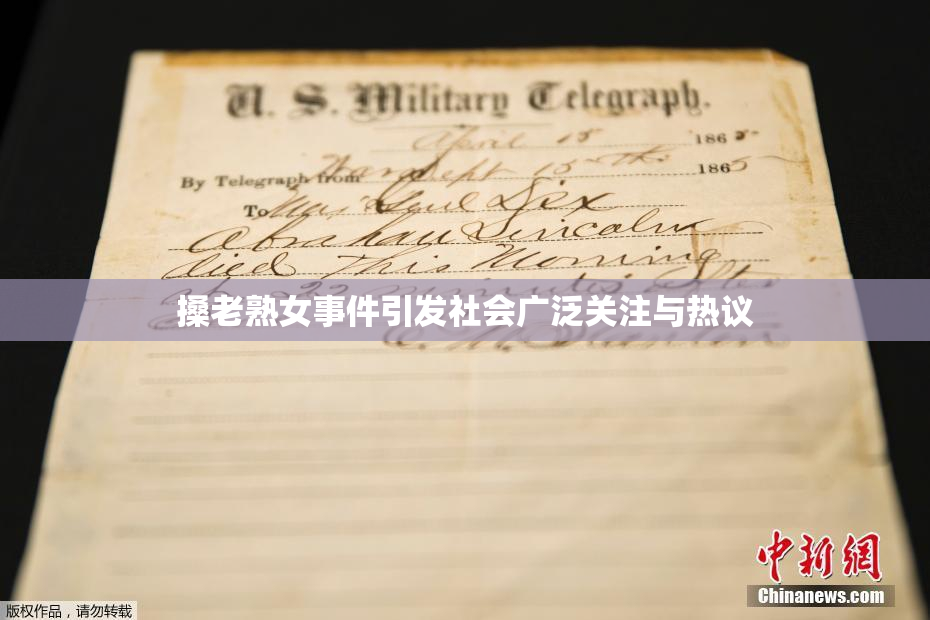 U. S. Military Telegraph.
April 15 1865
By Telegraph from War Dept 15th 1865
To Maj Genl Dix
Abraham Lincoln
died This Morning
at 22 minutes after
搡老熟女事件引发社会广泛关注与热议
E. M. Stanton
中新网
Chinanews.com
版权作品，请勿转载